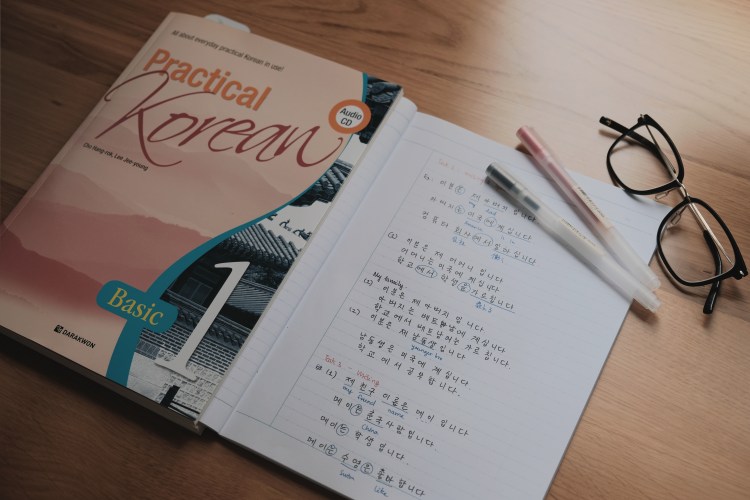 All about everyday practical Korean in use!
Practical
Korean
Audio
CD
Cho Hang-rok, Lee Jee-young
Basic
1
DARAKWON
이분은 제 아버지 입니다.
my
아버지는 미국에 계십니다.
회사에서
(2) 이분은 제 어머니 입니다.
어머니는 미국에 계십니다.
학교에서
My family.
(1) 이분은 제 아버지 입니다.
아버지는 베트남에 계십니다.
학교에서 베트남어를
(2) 이분은 제 남동생 입니다.
younger bro
남동생은 미국에 계십니다.
학교에서 공부합니다.
Task 2 - Writing
(1) 제 친구 이름은 메이 입니다.
my friend name
메이는 중국사람입니다.
China
메이는 학생입니다.
메이는 수영을
Swim like